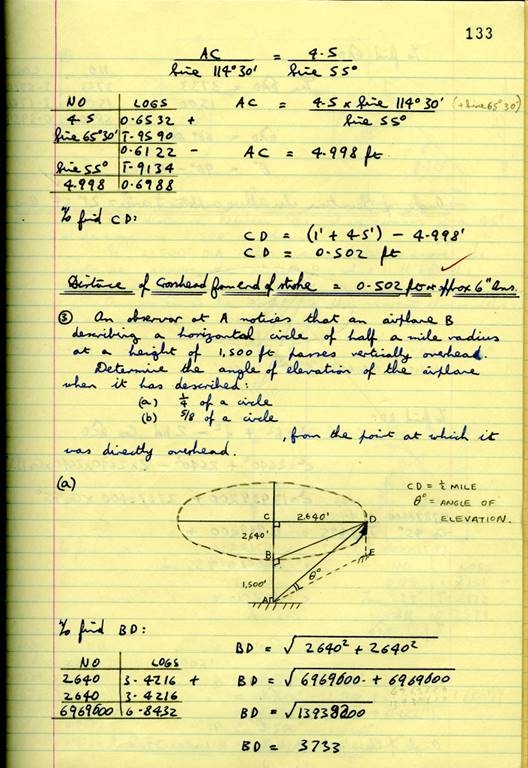 133
AC / Sine 114°30' = 4.5 / Sine 55°
NO LOGS
4.5 0.6532 +
Sine 65°30' T-9590
0.6122 -
Sine 55° T-9134
4.998 0.6988
AC = 4.5 x Sine 114°30' / Sine 55° (+ Sine 65°30')
AC = 4.998 ft.
To find CD:
CD = (1' + 4.5') - 4.998'
CD = 0.502 ft
Distance of Crosshead from end of stroke = 0.502 ft or approx 6" Ans.
③ An observor at A notices that an airplane B
describing a horizontal circle of half a mile radius
at a height of 1,500 ft passes vertically overhead.
Determine the angle of elevation of the airplane
when it has described:
(a) ¼ of a circle
(b) 5/8 of a circle
, from the point at which it
was directly overhead.
(a)
C 2,640' D
2,640'
B E
1,500'
A θ°
CD = ½ MILE
θ° = ANGLE OF
ELEVATION.
To find BD:
NO LOGS
2640 3.4216 +
2640 3.4216
6969600 6.8432
BD = √2640² + 2640²
BD = √6969600 + 6969600
BD = √13939200
BD = 3733